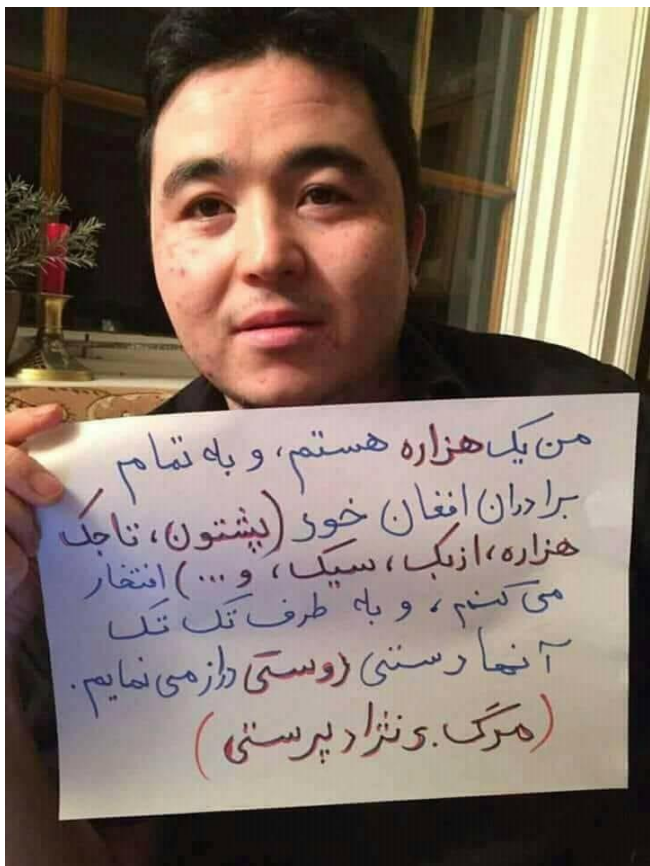 من یک هزاره هستم، و به تمام
برادران افغان خود (پشتون، تاجک
هزاره، ازبک، سیک، و ...) افتخار
می کنم، و به طرف تک تک
آنها دستی دوستی دراز می نمایم.
(مرگ بر نژاد پرستی)